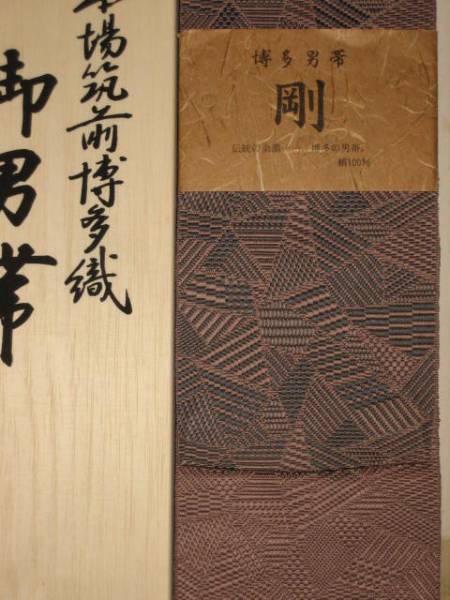 場筑前博多織
御男帯
博多男帯
剛
伝統の
博多の男帯。
絹100%